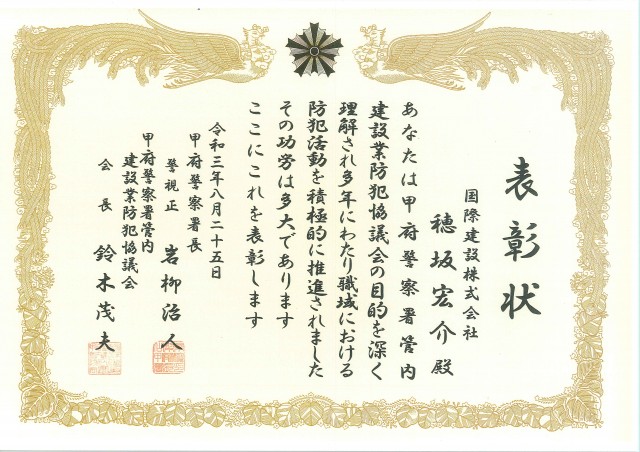 表彰状
国際建設株式会社
穂坂宏介殿
あなたは甲府警察署管内
建設業防犯協議会の目的を深く
理解され多年にわたり職域における
防犯活動を積極的に推進されました
その功労は多大であります
ここにこれを表彰します
令和三年八月二十五日
甲府警察署長
警視正 岩柳治人
甲府警察署管内
建設業防犯協議会
会長 鈴木茂夫